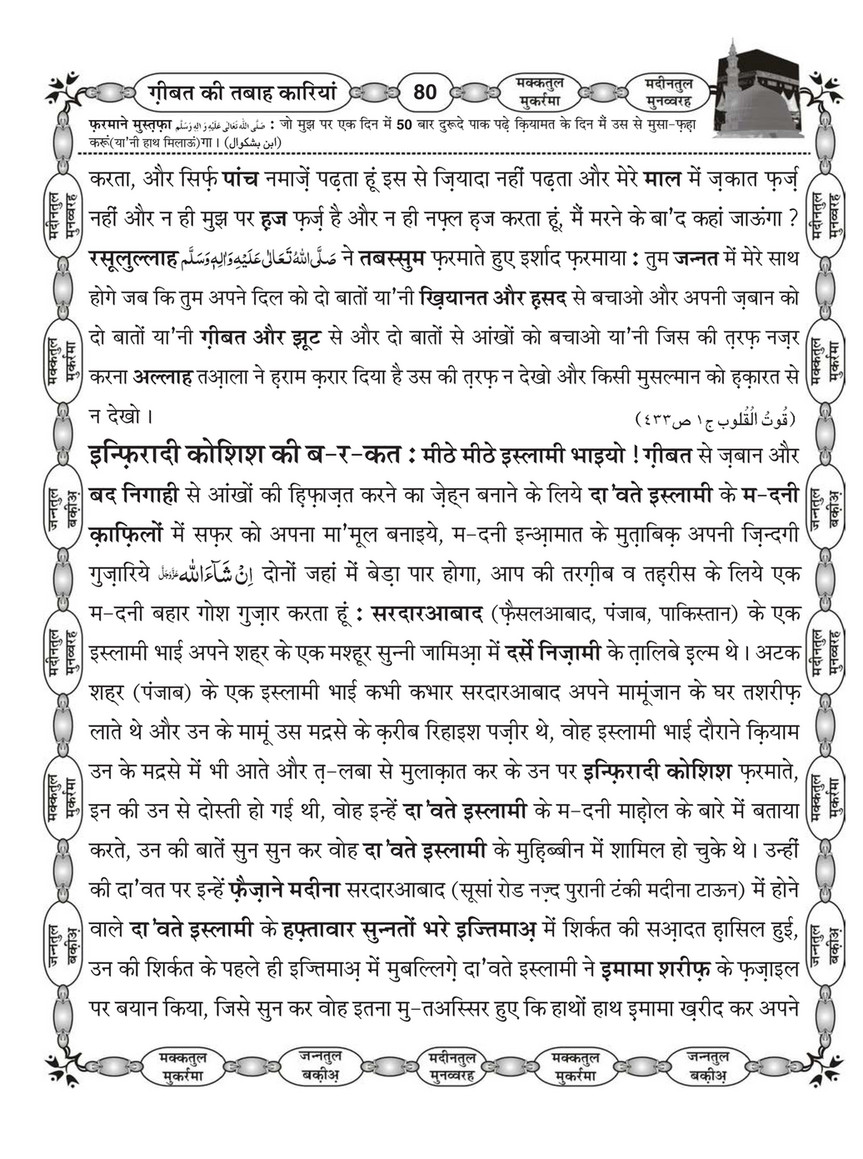 ग़ीबत की तबाह कारियां
80
मक्कतुल मुकर्रमा
मदीनतुल मुनव्वरह
फ़रमाने मुस्तफ़ा صَلَّى اللهُ تَعَالٰى عَلَيْهِ وَاٰلِهٖ وَسَلَّم : जो मुझ पर एक दिन में 50 बार दुरूदे पाक पढ़े क़ियामत के दिन मैं उस से मुसा-फ़हा
करूं(या'नी हाथ मिलाऊं)गा । (ابن بشکوال)
करता, और सिर्फ़ पांच नमाज़ें पढ़ता हूं इस से ज़ियादा नहीं पढ़ता और मेरे माल में ज़कात फ़र्ज़
नहीं और न ही मुझ पर ह़ज फ़र्ज़ है और न ही नफ़्ल ह़ज करता हूं, मैं मरने के बा'द कहां जाऊंगा ?
रसूलुल्लाह صَلَّى اللهُ تَعَالٰى عَلَيْهِ وَاٰلِهٖ وَسَلَّم ने तबस्सुम फ़रमाते हुए इर्शाद फ़रमाया : तुम जन्नत में मेरे साथ
होगे जब कि तुम अपने दिल को दो बातों या'नी ख़ियानत और ह़सद से बचाओ और अपनी ज़बान को
दो बातों या'नी ग़ीबत और झूट से और दो बातों से आंखों को बचाओ या'नी जिस की त़रफ़ नज़र
करना अल्लाह तआ़ला ने ह़राम क़रार दिया है उस की त़रफ़ न देखो और किसी मुसल्मान को ह़क़ारत से
न देखो । (قُوتُ الْقُلوب ج١ ص٤٣٣)
इन्फ़िरादी कोशिश की ब-र-कत : मीठे मीठे इस्लामी भाइयो ! ग़ीबत से ज़बान और
बद निगाही से आंखों की ह़िफ़ाज़त करने का ज़ेह्न बनाने के लिये दा'वते इस्लामी के म-दनी
क़ाफ़िलों में सफ़र को अपना मा'मूल बनाइये, म-दनी इन्आ़मात के मुत़ाबिक़ अपनी ज़िन्दगी
गुज़ारिये اِنْ شَآءَ الله عَزَّوَجَلَّ दोनों जहां में बेड़ा पार होगा, आप की तरग़ीब व तह़रीस के लिये एक
म-दनी बहार गोश गुज़ार करता हूं : सरदारआबाद (फ़ैसलआबाद, पंजाब, पाकिस्तान) के एक
इस्लामी भाई अपने शह्र के एक मश्हूर सुन्नी जामिआ़ में दर्से निज़ामी के त़ालिबे इ़ल्म थे । अटक
शह्र (पंजाब) के एक इस्लामी भाई कभी कभार सरदारआबाद अपने मामूंजान के घर तशरीफ़
लाते थे और उन के मामूं उस मद्रसे के क़रीब रिहाइश पज़ीर थे, वोह इस्लामी भाई दौराने क़ियाम
उन के मद्रसे में भी आते और त़-लबा से मुलाक़ात कर के उन पर इन्फ़िरादी कोशिश फ़रमाते,
इन की उन से दोस्ती हो गई थी, वोह इन्हें दा'वते इस्लामी के म-दनी माह़ोल के बारे में बताया
करते, उन की बातें सुन सुन कर वोह दा'वते इस्लामी के मुह़िब्बीन में शामिल हो चुके थे । उन्हीं
की दा'वत पर इन्हें फ़ैज़ाने मदीना सरदारआबाद (सूसां रोड नज़्द पुरानी टंकी मदीना टाऊन) में होने
वाले दा'वते इस्लामी के हफ़्तावार सुन्नतों भरे इज्तिमाअ़ में शिर्कत की सआ़दत ह़ासिल हुई,
उन की शिर्कत के पहले ही इज्तिमाअ़ में मुबल्लिग़े दा'वते इस्लामी ने इ़मामा शरीफ़ के फ़ज़ाइल
पर बयान किया, जिसे सुन कर वोह इतना मु-तअस्सिर हुए कि हाथों हाथ इ़मामा ख़रीद कर अपने
मदीनतुल मुनव्वरह
मक्कतुल मुकर्रमा
जन्नतुल बक़ीअ़
मदीनतुल मुनव्वरह
मक्कतुल मुकर्रमा
जन्नतुल बक़ीअ़
मदीनतुल मुनव्वरह
मक्कतुल मुकर्रमा
जन्नतुल बक़ीअ़
मदीनतुल मुनव्वरह
मक्कतुल मुकर्रमा
जन्नतुल बक़ीअ़
मक्कतुल मुकर्रमा
जन्नतुल बक़ीअ़
मदीनतुल मुनव्वरह
मक्कतुल मुकर्रमा
जन्नतुल बक़ीअ़